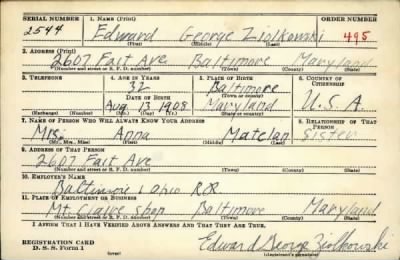 SERIAL NUMBER 1. NAME (Print) ORDER NUMBER
2544 Edward George Ziolkowski 495
(First) (Middle) (Last)
2. ADDRESS (Print)
2607 Fait Ave Baltimore Maryland
(Number and street or R. F. D. number) (Town) (County) (State)
3. TELEPHONE 4. AGE IN YEARS 5. PLACE OF BIRTH 6. COUNTRY OF CITIZENSHIP
32 Baltimore
DATE OF BIRTH (Town or county)
Aug. 13 1908 Maryland U. S. A
(Exchange) (Number) (Mo.) (Day) (Yr.) (State or country)
7. NAME OF PERSON WHO WILL ALWAYS KNOW YOUR ADDRESS 8. RELATIONSHIP OF THAT PERSON
Mrs. Anna Matelan Sister
(Mr., Mrs., Miss) (First) (Middle) (Last)
9. ADDRESS OF THAT PERSON
2607 Fait Ave
(Number and street or R. F. D. number) (Town) (County) (State)
10. EMPLOYER'S NAME
Baltimore & Ohio RR
11. PLACE OF EMPLOYMENT OR BUSINESS
Mt Claire Shop Baltimore Maryland
(Number and street or R. F. D. number) (Town) (County) (State)
I AFFIRM THAT I HAVE VERIFIED ABOVE ANSWERS AND THAT THEY ARE TRUE.
REGISTRATION CARD
D. S. S. Form 1 Edward George Ziolkowski
(over) (Registrant's signature)